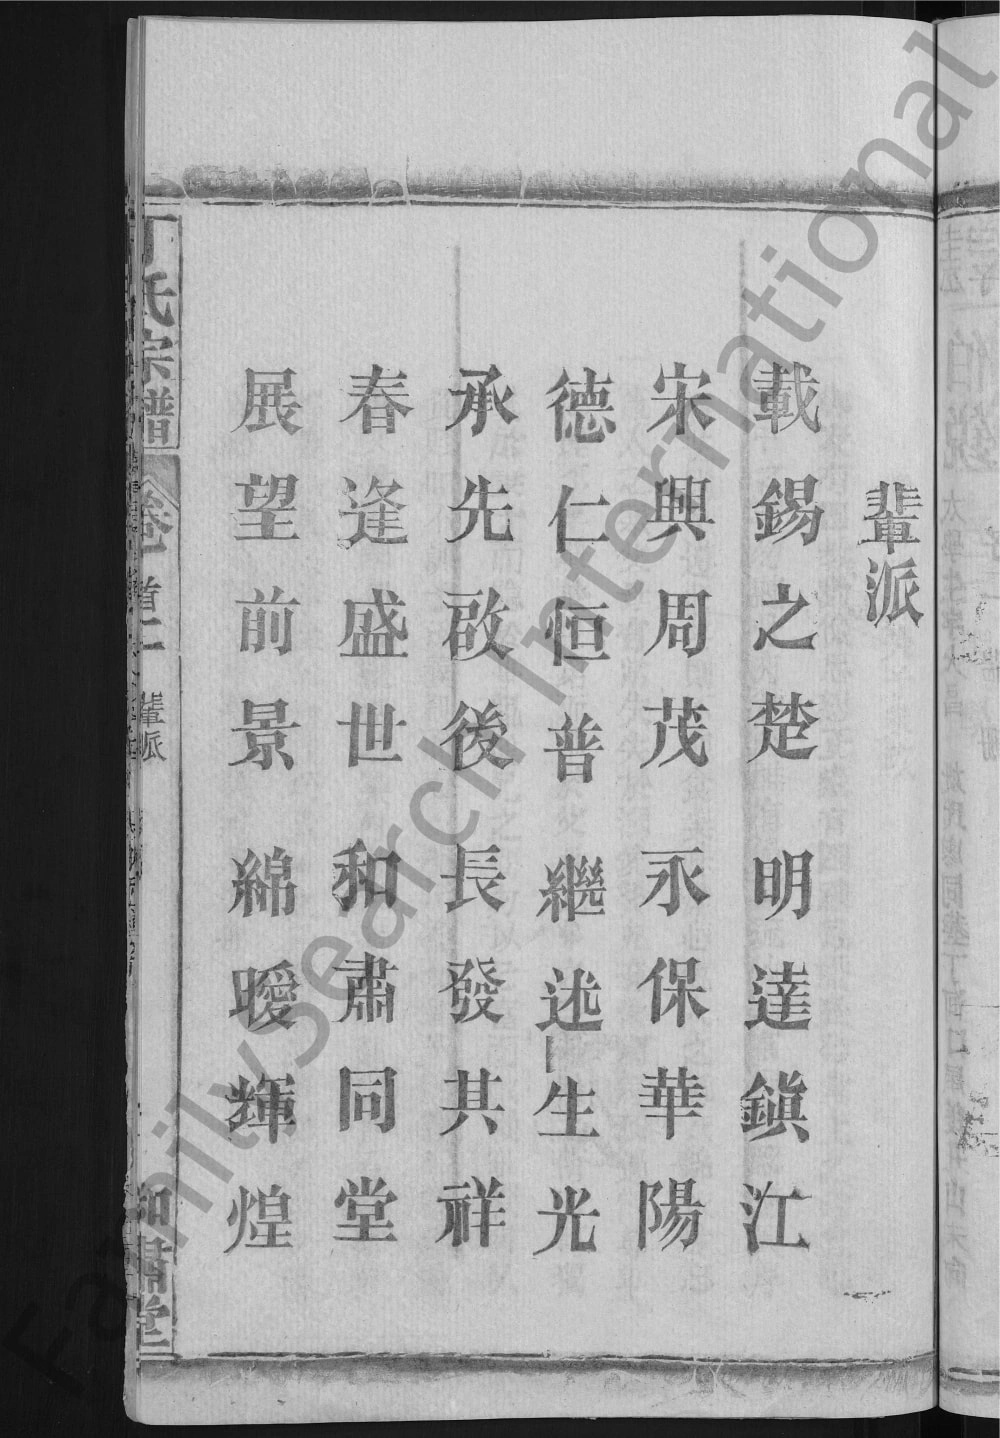 輩派
載錫之楚 明達鎮江
宋興周茂 永保華陽
德仁恒普 繼述生光
承先啟後 長發其祥
春逢盛世 和肅同堂
展望前景 綿曖輝煌
丁氏宗譜
卷首二
輩派
和肅堂
FamilySearch International